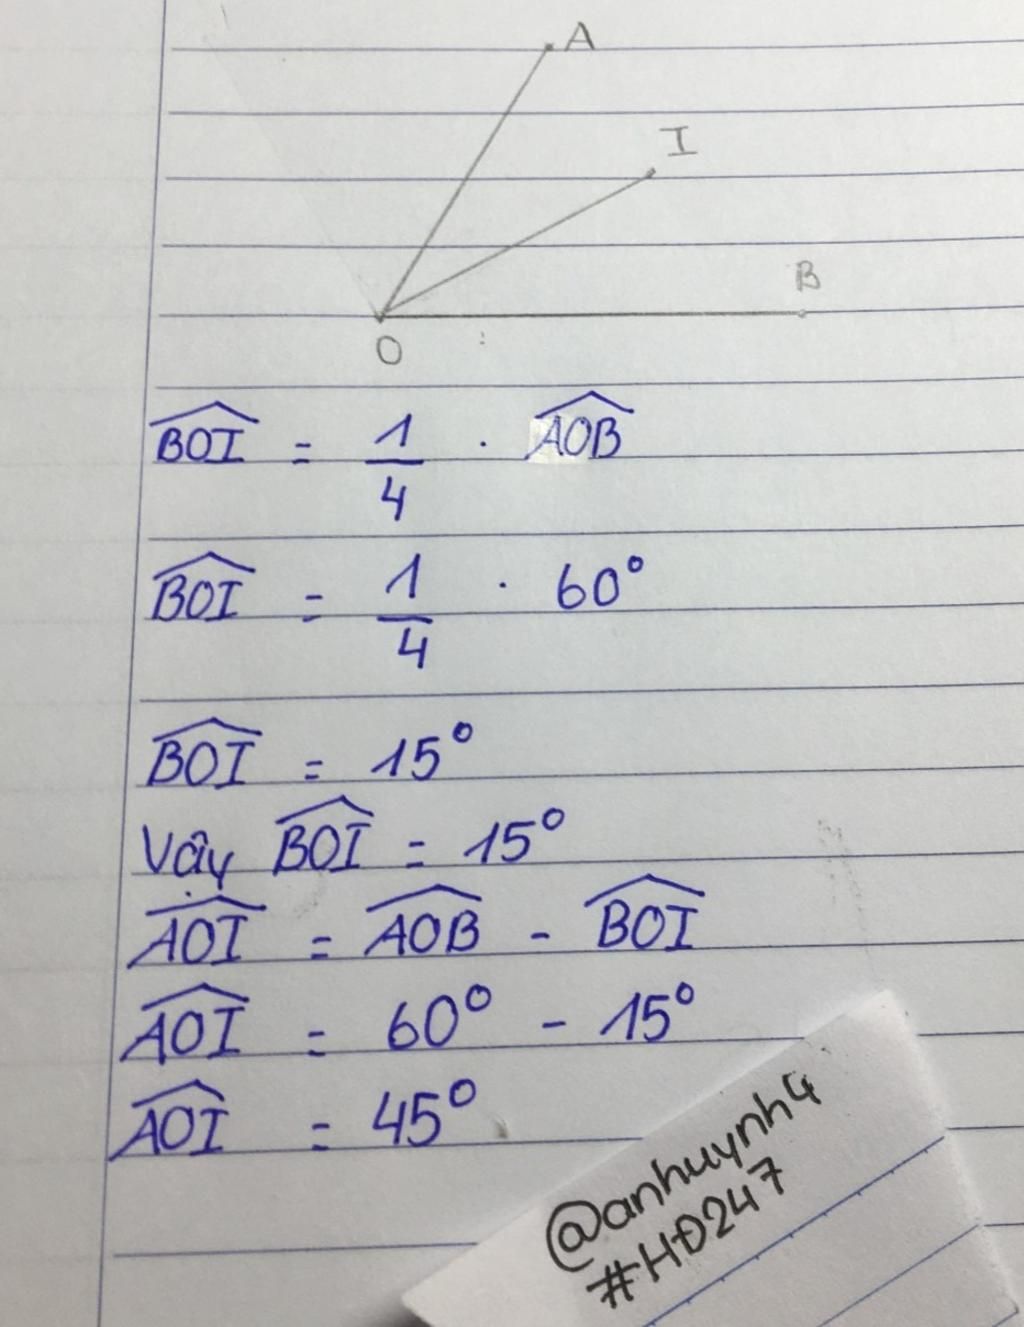 A
I
B
O
BOI = 1/4 . AOB
BOI = 1/4 . 60°
BOI = 15°
Vậy BOI = 15°
AOI = AOB - BOI
AOI = 60° - 15°
AOI = 45°
@anhuynh4
#HĐ247